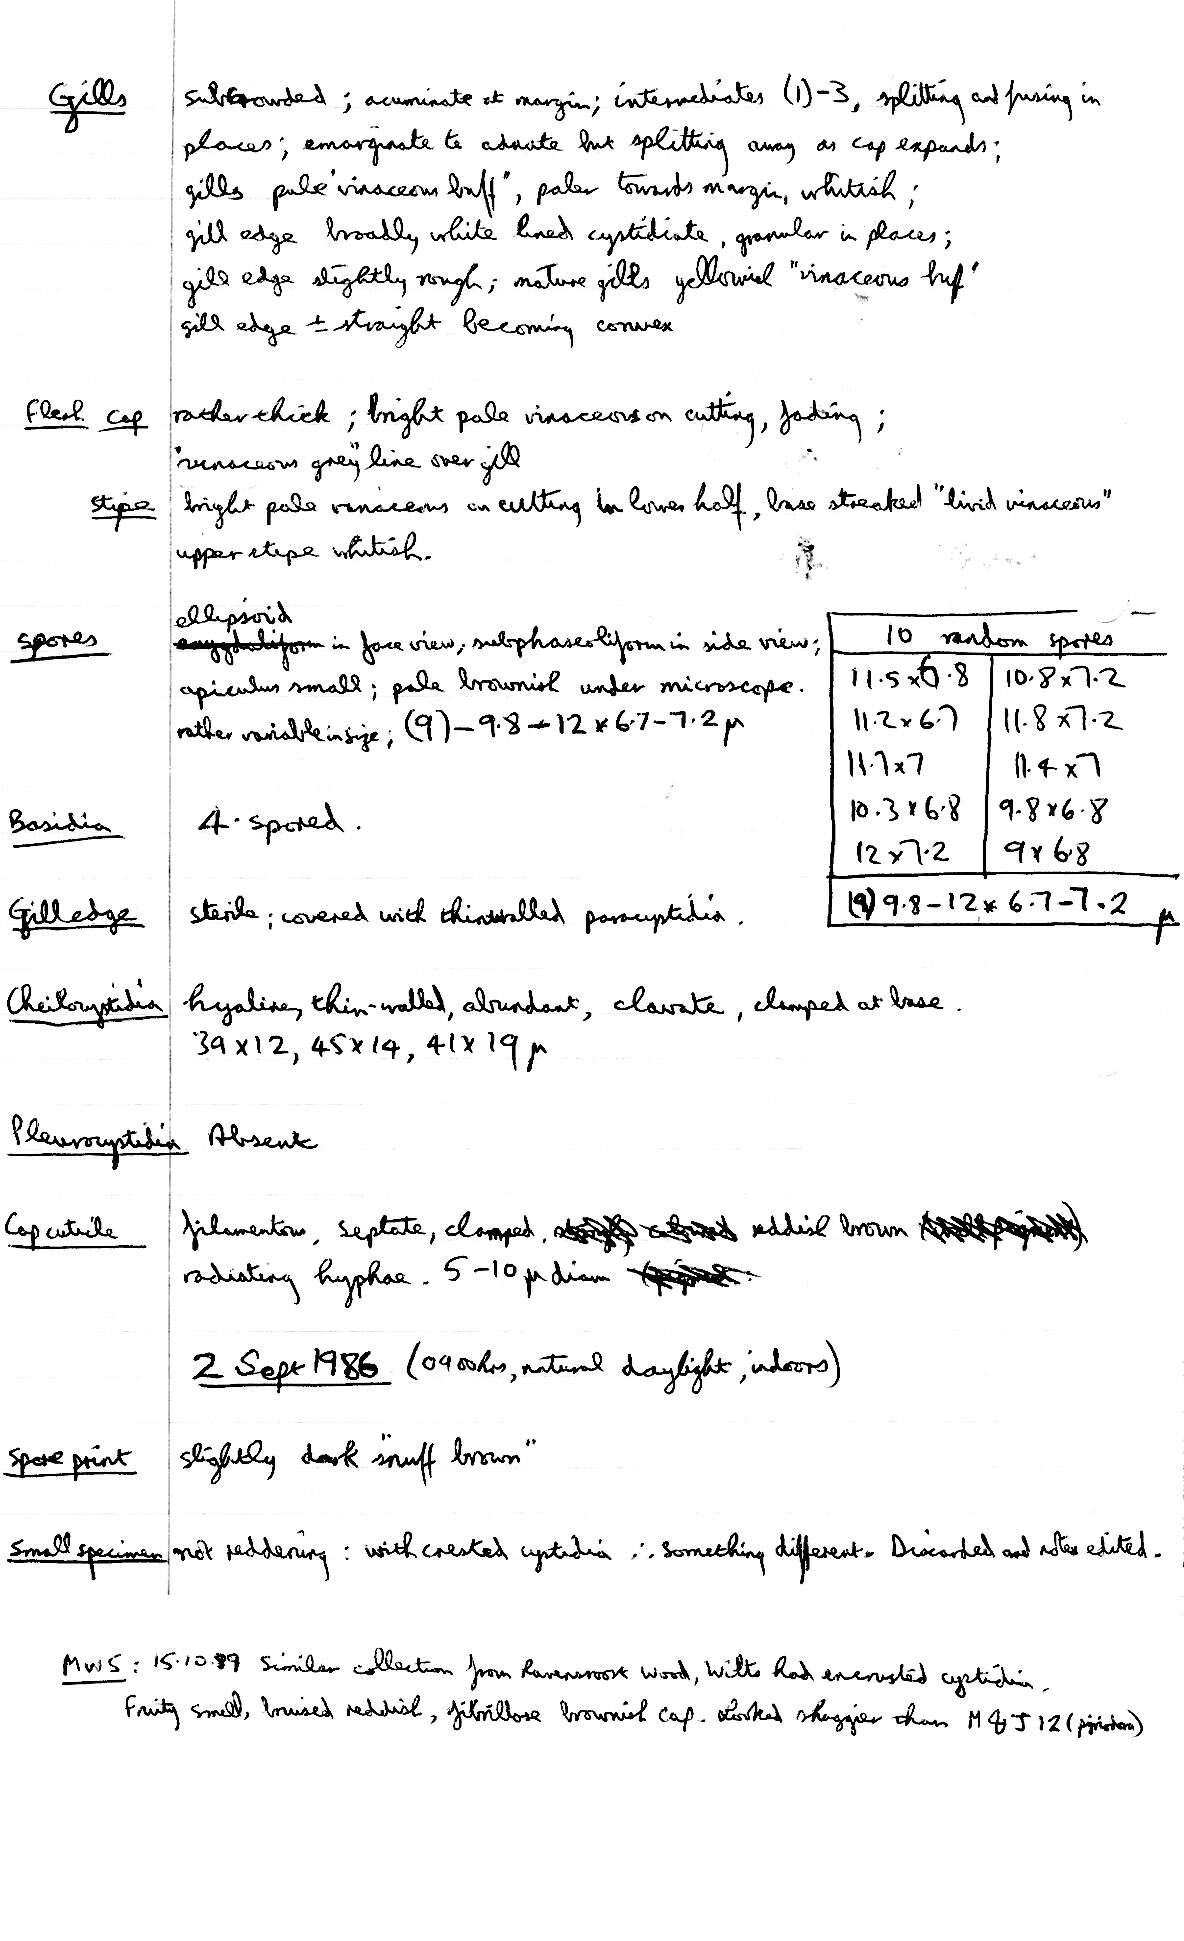 Gills subcrowded; acuminate at margin; intermediates (1)-3, splitting and fusing in
places; emarginate to adnate but splitting away as cap expands;
gills pale "vinaceous buff", paler towards margin, whitish;
gill edge broadly white lined cystidiate, granular in places;
gill edge slightly rough; mature gills yellowish "vinaceous buff"
gill edge ± straight becoming convex
Flesh Cap rather thick; bright pale vinaceous on cutting, fading;
"vinaceous grey" line over gill
Stipe bright pale vinaceous on cutting in lower half, base streaked "livid vinaceous"
upper stipe whitish.
ellipsoid
Spores amygdaliform in face view, subphaseoliform in side view;
apiculus small; pale brownish under microscope.
rather variable in size; (9)-9.8-12 x 6.7-7.2 μ
10 random spores
11.5x6.8 10.8x7.2
11.2x6.7 11.8x7.2
11.7x7 11.4x7
10.3x6.8 9.8x6.8
12x7.2 9x6.8
(9) 9.8-12 x 6.7-7.2 μ
Basidia 4-spored.
Gill edge sterile; covered with thinwalled paracystidia.
Cheilocystidia hyaline, thin-walled, abundant, clavate, clamped at base.
39x12, 45x14, 41x19 μ
Pleurocystidia Absent
Cap cuticle filamentous, septate, clamped, reddish brown
radiating hyphae. 5-10 μ diam
2 Sept 1986 (0900hrs, natural daylight, indoors)
Spore print slightly dark "snuff brown"
Small specimen not reddening: with crested cystidia ∴ something different. Discarded and notes edited.
MWS: 15.10.89 Similar collection from Ravensroost Wood, Wilts had encrusted cystidia.
Fruity smell, bruised reddish, fibrillose brownish cap. Looked shaggier than M & J 12